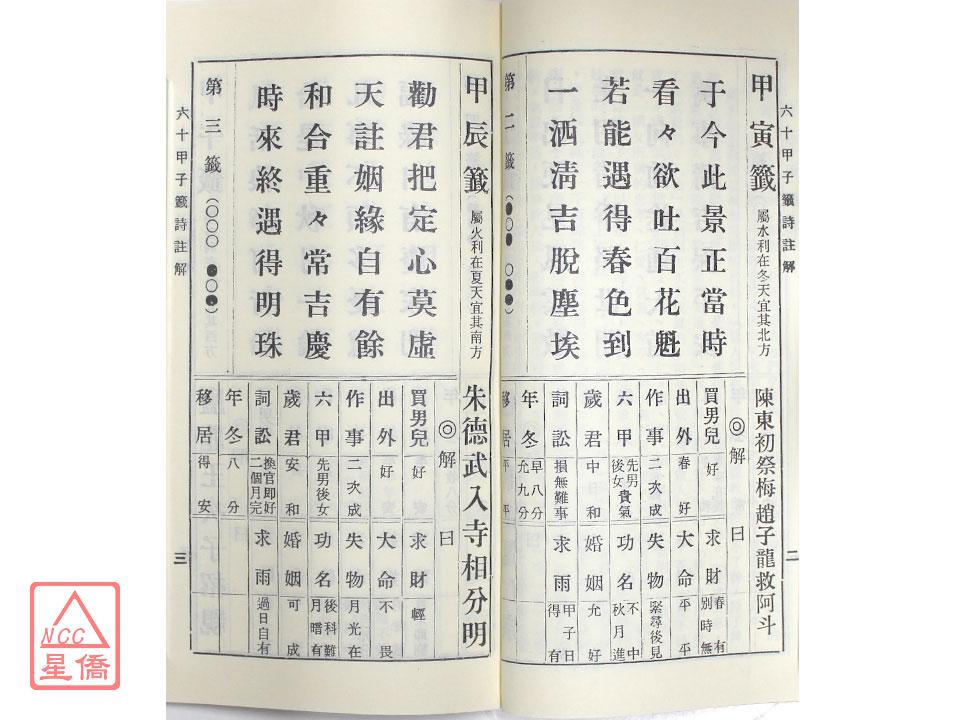 六十甲子籤詩註解
二
甲寅籤 屬水利在冬天宜其北方
陳東初祭梅 趙子龍救阿斗
于今此景正當時
看々欲吐百花魁
若能遇得春色到
一洒淸吉脫塵埃
第二籤(●○● ○●●)
◎解曰
買男兒 好
出外 春好
作事 二次成
六甲 先男貴氣後女
歲君 中日和
詞訟 損無難事
年冬 早八分允九分
移居 平平
求財 春有別時無
大命 平平
失物 緊尋後見
功名 不中秋月進
婚姻 允好
求雨 甲子日得有
甲辰籤 屬火利在夏天宜其南方
朱德武入寺相分明
勸君把定心莫虛
天註姻緣自有餘
和合重々常吉慶
時來終遇得明珠
第三籤(○○○ ●○●)
◎解曰
買男兒 好
出外 好
作事 二次成
六甲 先男後女
歲君 安和
詞訟 換官即好二個月完
年冬 八分
移居 得安
求財 輕
大命 不畏
失物 月光在
功名 後科難月嗜有
婚姻 可成
求雨 過日自有
六十甲子籤詩註解
三
NCC
星僑